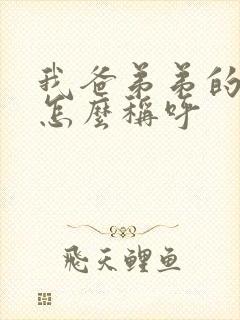 我爸弟弟的
怎麼稱呼
飛天鯉魚